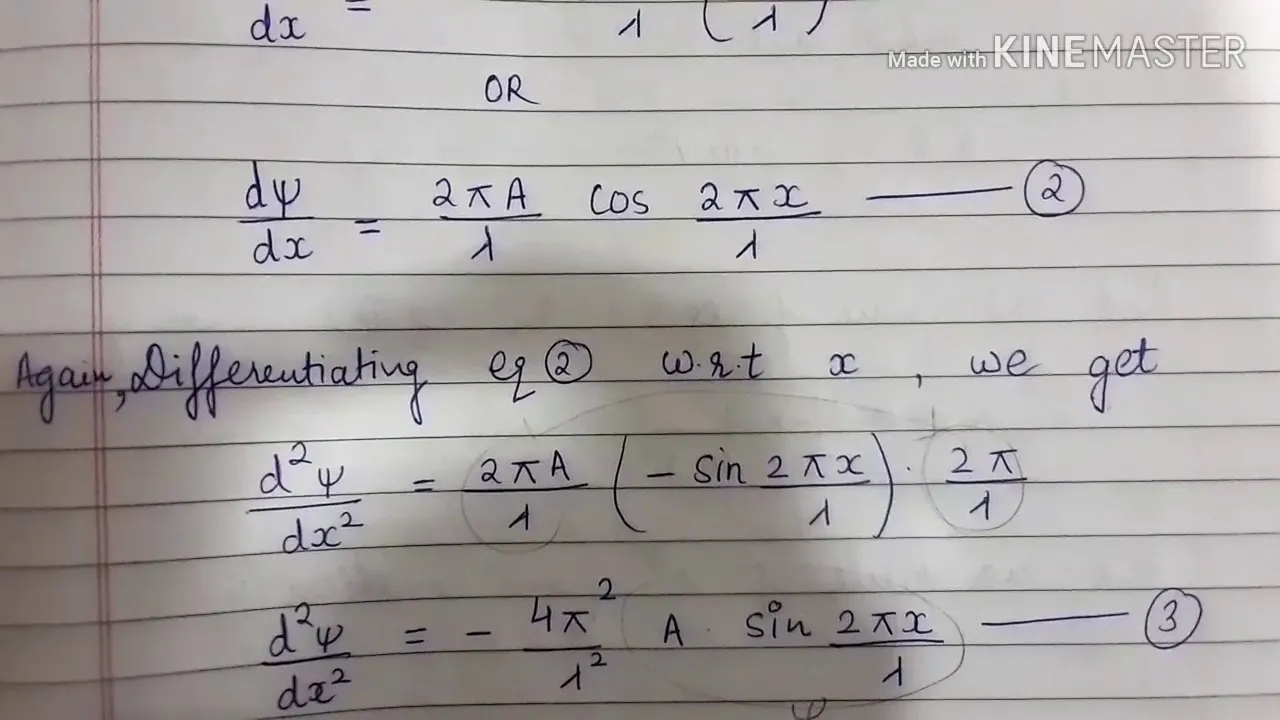 dx = λ ( λ )
Made with KINEMASTER
OR
dψ/dx = 2πA/λ cos 2πx/λ —— ②
Again, Differentiating eq ② w.r.t x , we get
d²ψ/dx² = 2πA/λ (- sin 2πx/λ) · 2π/λ
d²ψ/dx² = - 4π²/λ² A · sin 2πx/λ —— ③
ψ